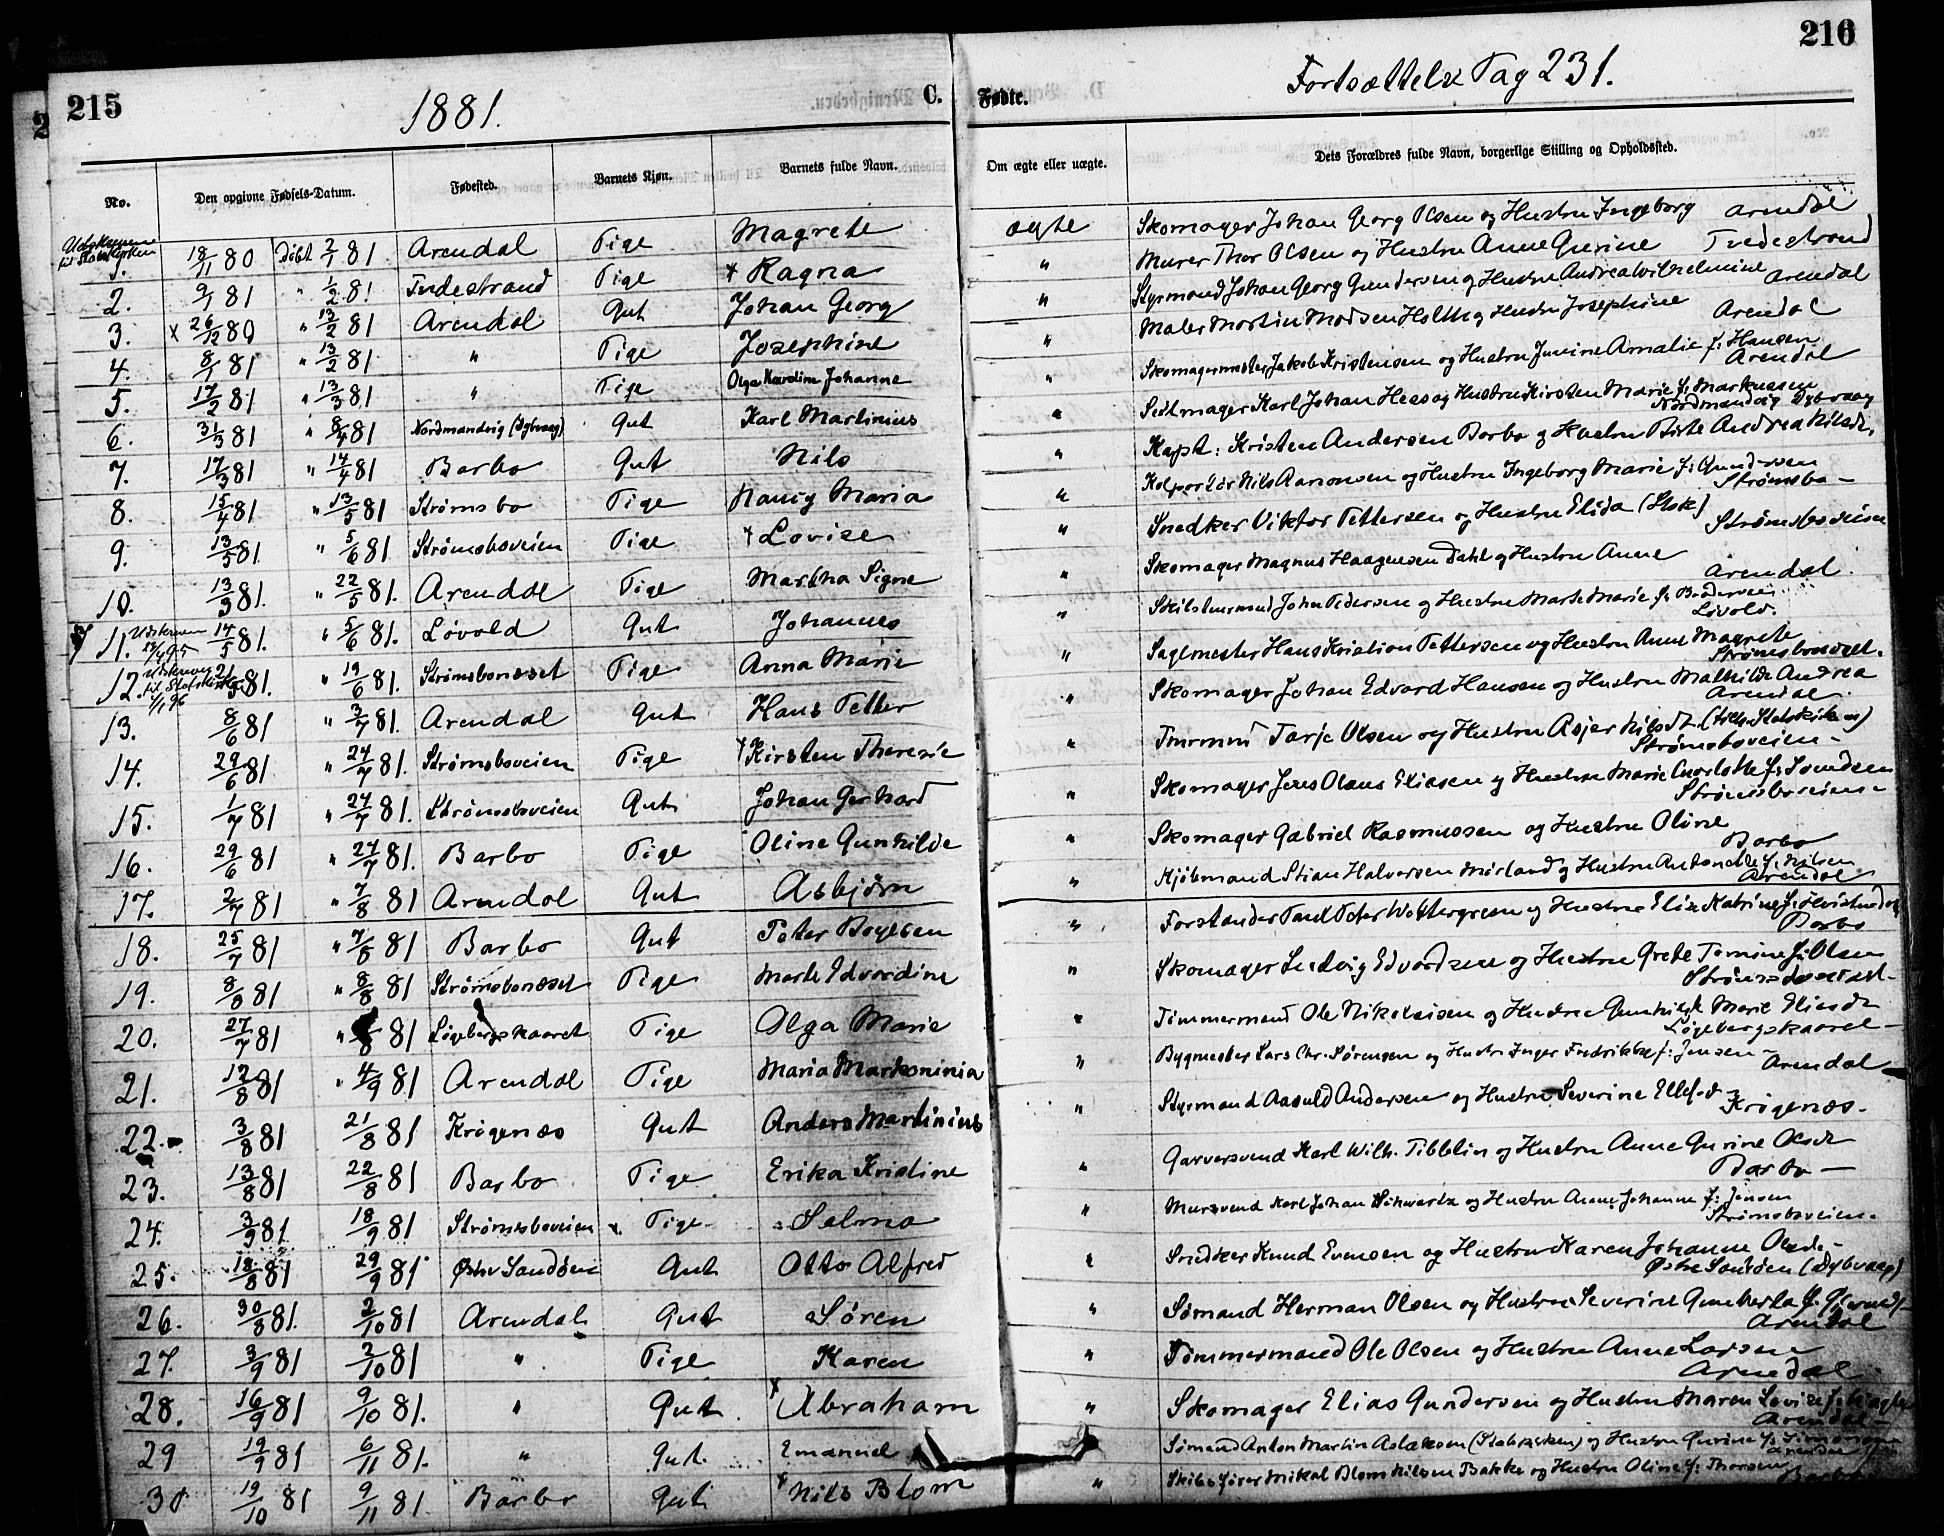 215
1881.
C.
No.
Den opgivne Fødsels-Datum.
Fødested.
Barnets Kjøn.
Barnets fulde Navn.
Udskreven til Statskirken
1. 18/11 80 Døbt 2/1 81 Arendal Pige Magrete
2. 9/1 81 " 1/2 81 Tvedestrand Pige × Ragna
3. × 26/12 80 " 13/2 81 Arendal Gut Johan Georg
4. 8/1 81 " 13/2 81 " Pige Josephine
5. 17/2 81 " 13/3 81 " Pige Olga Karoline Johanne
6. 31/3 81 " 8/4 81 Nordmandvig (Dybvaag) Gut Karl Martinius
7. 17/3 81 " 14/4 81 Barbo Gut Nils
8. 15/4 81 " 13/5 81 Strømsbo Pige Nancy Maria
9. 13/5 81 " 5/6 81 Strømsboveien Pige × Lovise
10. 13/3 81. " 22/5 81. Arendal Pige Martha Signe
11. Udskreven 14/5 81. " 5/6 81. Løvold Gut Johannes
12. Udskreven til Statskirken 1/1 96 81. " 19/6 81. Strømsbonæset Pige Anna Marie
13. 8/6 81 " 3/7 81. Arendal Gut Hans Petter
14. 29/6 81 " 24/7 81. Strømsboveien Pige × Kirsten Theresie
15. 1/7 81 " 24/7 81. Strømsboveien Gut Johan Gerhard
16. 29/6 81 " 24/7 81. Barbo Pige Oline Gunhilde
17. 2/7 81 " 7/8 81 Arendal Gut Asbjørn
18. 25/7 81 " 7/8 81 Barbo Gut Peter Boyesen
19. 8/8 81 " 8/8 81 Strømsbonæset Pige Marte Edvardine
20. 27/7 81 " /8 81 Løgebergskaaret Pige Olga Marie
21. 12/8 81 " 4/9 81 Arendal Pige Maria Markoninia
22. 3/8 81 21/8 81 Krøgenæs Gut Anders Martinius
23. 13/8 81 22/8 81 Barbo Pige Erika Kristine
24. 3/9 81 18/9 81 Strømsboveien Pige Selma
25. 18/8 81 29/9 81 Østre Sandøen Gut Otto Alfred
26. 30/8 81. 2/10 81 Arendal Gut Søren
27. 3/9 81 2/10 81 " Pige Karen
28. 16/9 81 9/10 81. " Gut × Abraham
29 19/9 81 6/11 81. " Gut. Emanuel
30 19/10 81 9/11 81. Barbo Gut × Nils Blom
216
Fortsættelse Pag 231.
Fødte.
Om ægte eller uægte.
Dets Forældres fulde Navn, borgerlige Stilling og Opholdssted.
ægte Skomager Johan Georg Olsen og Hustru Ingeborg Arendal
" Murer Thor Olsen og Hustru Anne Gurine Tvedestrand
" Styrmand Johan Georg Gundersen og Hustru Andrea Wilhelmine Arendal
" Maler Martin Madsen Holth og Hustru Josephine Arendal
" Skomagermester Jakob Kristensen og Hustru Juvine Amalie f: Hansen
Arendal
" Seilmager Karl Johan Hess og Hustru Kirsten Marie f: Markussen
Nordmandvig Dybvaag
" Kapt: Kristen Andersen Barbo og Hustru Birte Andrea Nilsdr.
" Kolportør Nils Aanonsen og Hustru Ingeborg Marie f: Gundersen
Strømsbo —
" Snedker Viktor Pettersen og Hustru Elida (Stsk)
Strømsboveien
" Skomager Magnus Haagensen Dahl og Hustru Anne
Arendal.
" Skibstømmermand John Pedersen og Hustru Marte Marie f:
Løvold.
" Sagemester Hans Kristian Pettersen og Hustru Anne Magrete
Strømsbonæset.
" Skomager Johan Edvard Hansen og Hustru Mathilde Andrea
Arendal.
" Tømmermd Tarje Olsen og Hustru Asjer Nilsdt (tilh. Statskirken)
Strømsboveien —
" Skomager Jens Olaus Eliasen og Hustru Marie Charlotte f: Svendsen
Strømsboveien —
" Skomager Gabriel Rasmussen og Hustru Oline
Barbo
" Kjøbmand Stian Halvorsen Mørland og Hustru Antonette f: Nilsen
Arendal
" Forstander Paul Peter Wettergreen og Hustru Elise Katrine f:
Barbo
" Skomager Ludvig Edvardsen og Hustru Grete Tomine f: Olsen
Strømsbonæset —
" Tømmermand Ole Nikolaisen og Hustru Gunhild Marie Eliasdt
Løgebergskaaret —
" Bygmester Lars Chr. Sørensen og Hustr Inger Fredrikke f: Jensen —
Arendal
" Styrmand Aasuld Andersen og Hustru Severine Ellefsd —
Krøgenæs.
" Garversvend Karl Wilh. Tibblin og Hustru Anne Gurine Olsdt
Barbo —
" Mursvend Karl Johan Schwartz og Hustru Anne Johanne f: Jensen
Strømsboveien.
" Snedker Knud Evensen og Hustru Karen Johanne Olsdr. —
Østre Sandøen (Dybvaag)
" Sømand Herman Olsen og Hustru Severine Gunberta f:
Arendal
" Tømmermand Ole Olsen og Hustru Anne Larsen
Arendal.
" Skomager Elias Gundersen og Hustru Maren Lovise f:
Arendal —
" Sømand Anton Martin Aslaksen (Statskirken) og Hustru Gurine f: Simonsen
Arendal
" Skibsfører Mikal Blom Nilsen Bakke og Hustru Oline f: Thorsen
Barbo